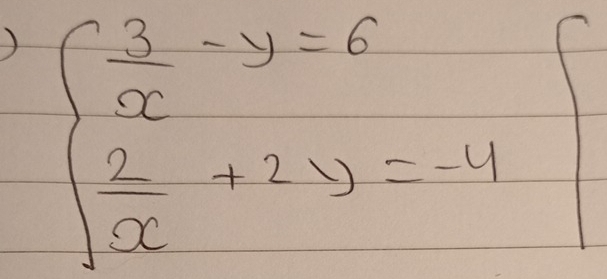 ) { 3/x - y = 6
2/x + 2y = -4